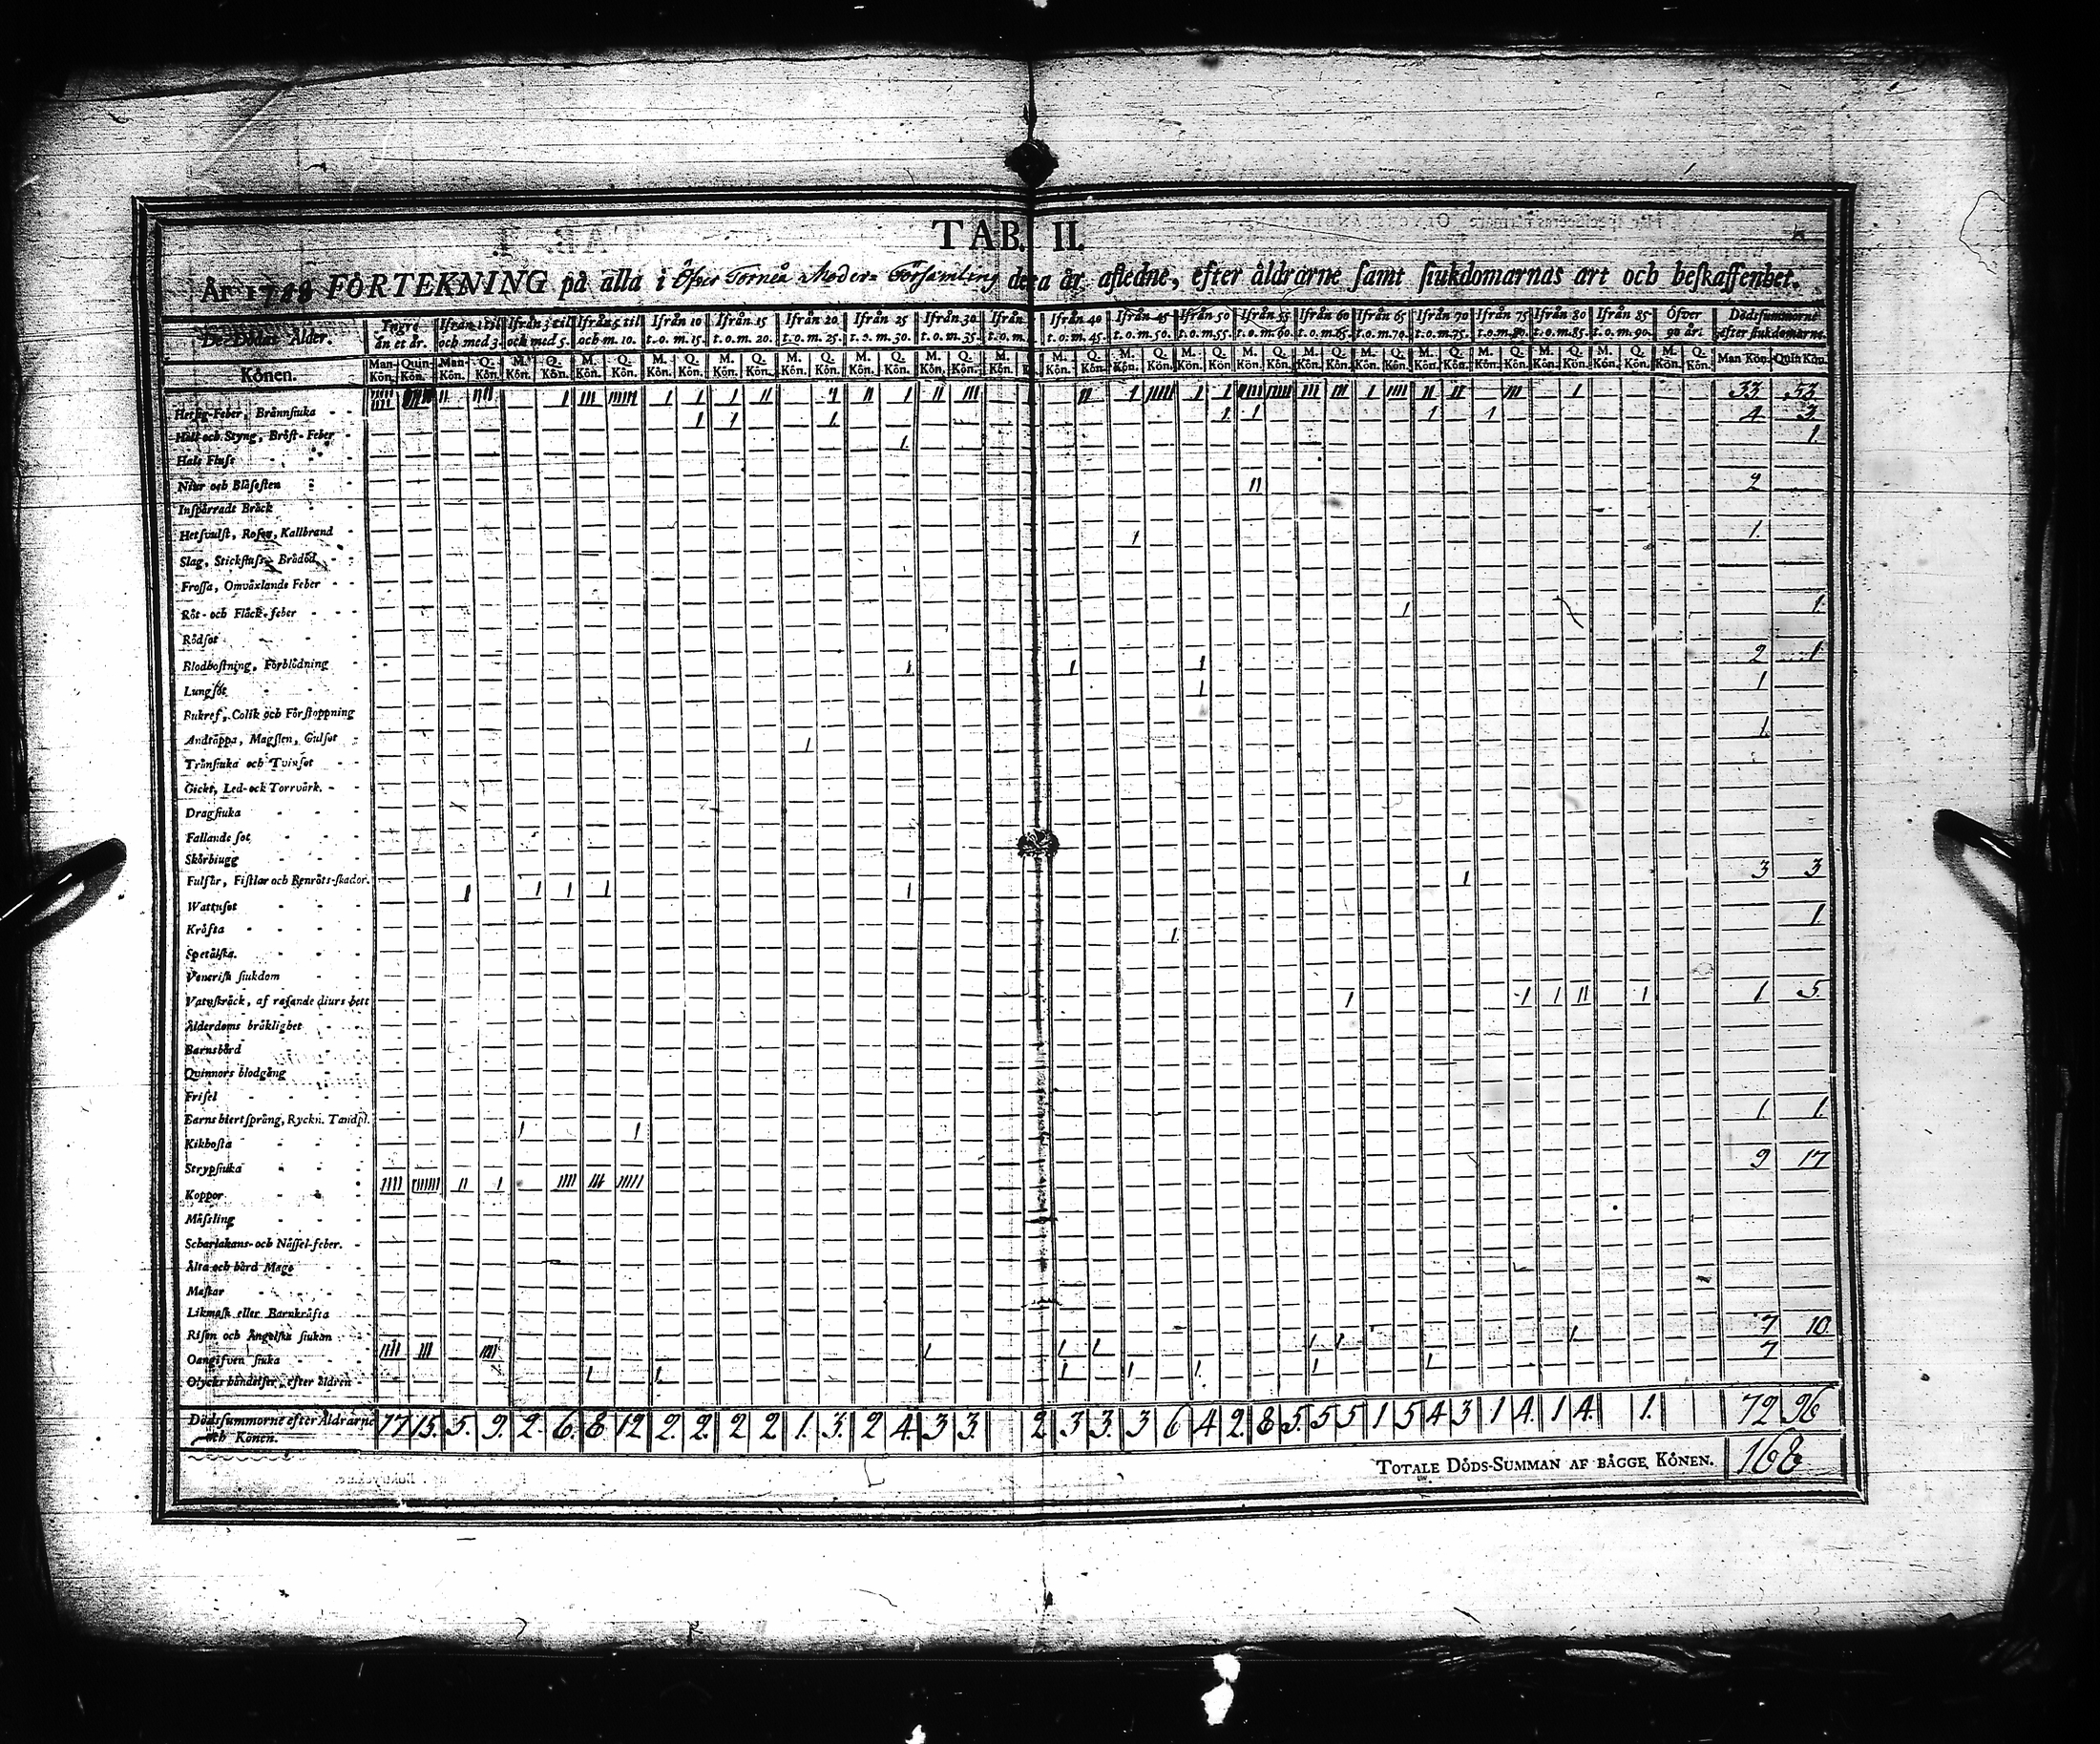 TAB. II.
År 1788 FÖRTEKNING på alla i Öfver Torneå Moder= Församling detta år afledne, efter åldrarne samt siukdomarnas art och beskaffenhet.
De Dödas Ålder. Yngre än et år. Ifrån 1 til och med 3. Ifrån 3 til och med 5. Ifrån 5 til och m. 10. Ifrån 10 t.o.m. 15. Ifrån 15 t.o.m. 20. Ifrån 20 t.o.m. 25. Ifrån 25 t.o.m. 30. Ifrån 30 t.o.m. 35. Ifrån t.o.m. Ifrån 40 t.o.m. 45. Ifrån 45 t.o.m. 50. Ifrån 50 t.o.m. 55. Ifrån 55 t.o.m. 60. Ifrån 60 t.o.m. 65. Ifrån 65 t.o.m. 70. Ifrån 70 t.o.m. 75. Ifrån 75 t.o.m. 80. Ifrån 80 t.o.m. 85. Ifrån 85 t.o.m. 90. Öfver 90 år. Dödsummorne efter siukdomarne.
Könen. Man-Kön. Quin-Kön. Man-Kön. Q. Kön. M. Kön. Q. Kön. M. Kön. Q. Kön. M. Kön. Q. Kön. M. Kön. Q. Kön. M. Kön. Q. Kön. M. Kön. Q. Kön. M. Kön. Q. Kön. M. Kön. M. Kön. Q. Kön. M. Kön. Q. Kön. M. Kön. Q. Kön. M. Kön. Q. Kön. M. Kön. Q. Kön. M. Kön. Q. Kön. M. Kön. Q. Kön. M. Kön. Q. Kön. M. Kön. Q. Kön. M. Kön. Q. Kön. M. Kön. Q. Kön. Man Kön. Quin Kön.
Hetsig-Feber, Brännsiuka 33 53
Håll och Styng, Bröst-Feber 4 3
Hals Fluss 1.
Niur och Blåsesten
Inspärradt Bråck 2
Hetsvulst, Rosen, Kallbrand
Slag, Stickfluss, Brådöd 1.
Frossa, Omväxlande Feber
Röt- och Fläck-feber
Rödsot 1.
Blodhostning, Förblödning
Lungsot 2 1
Bukref, Colik och Förstoppning 1
Andtäppa, Magsten, Gulsot
Trånsiuka och Tvinsot 1.
Gickt, Led- och Torrvärk.
Dragsiuka
Fallande sot
Skörbiugg
Fulsår, Fistlar och Benröts-skador.
Wattusot 3 3
Kräfta 1.
Spetälska.
Venerisk siukdom
Vatuskräck, af rasande diurs bett
Ålderdoms bräklighet 1 5.
Barnsbörd
Quinnors blodgång
Frisel
Barns hiertsprång, Ryckn. Tandpl.
Kikhosta 1. 1.
Strypsiuka
Koppor 9 17
Mässling
Scharlakans- och Nässel-feber.
Älta och hård Mage
Maskar
Likmask eller Barnkräfta
Risen och Ängelska siukan
Oangifven siuka 7 10
Olycks händelser, efter åldren 7
Dödsummorne efter Åldrarne och Könen. 17 15. 5. 9. 2. 6. 8 12 2. 2. 2 2 1. 3. 2 4. 3 3. 2 3. 3. 3 6 4 2. 8 5. 5 5 1 5 4 3 1 4. 1 4. 1. 72 96
TOTALE DÖDS-SUMMAN AF BÄGGE KÖNEN. 168